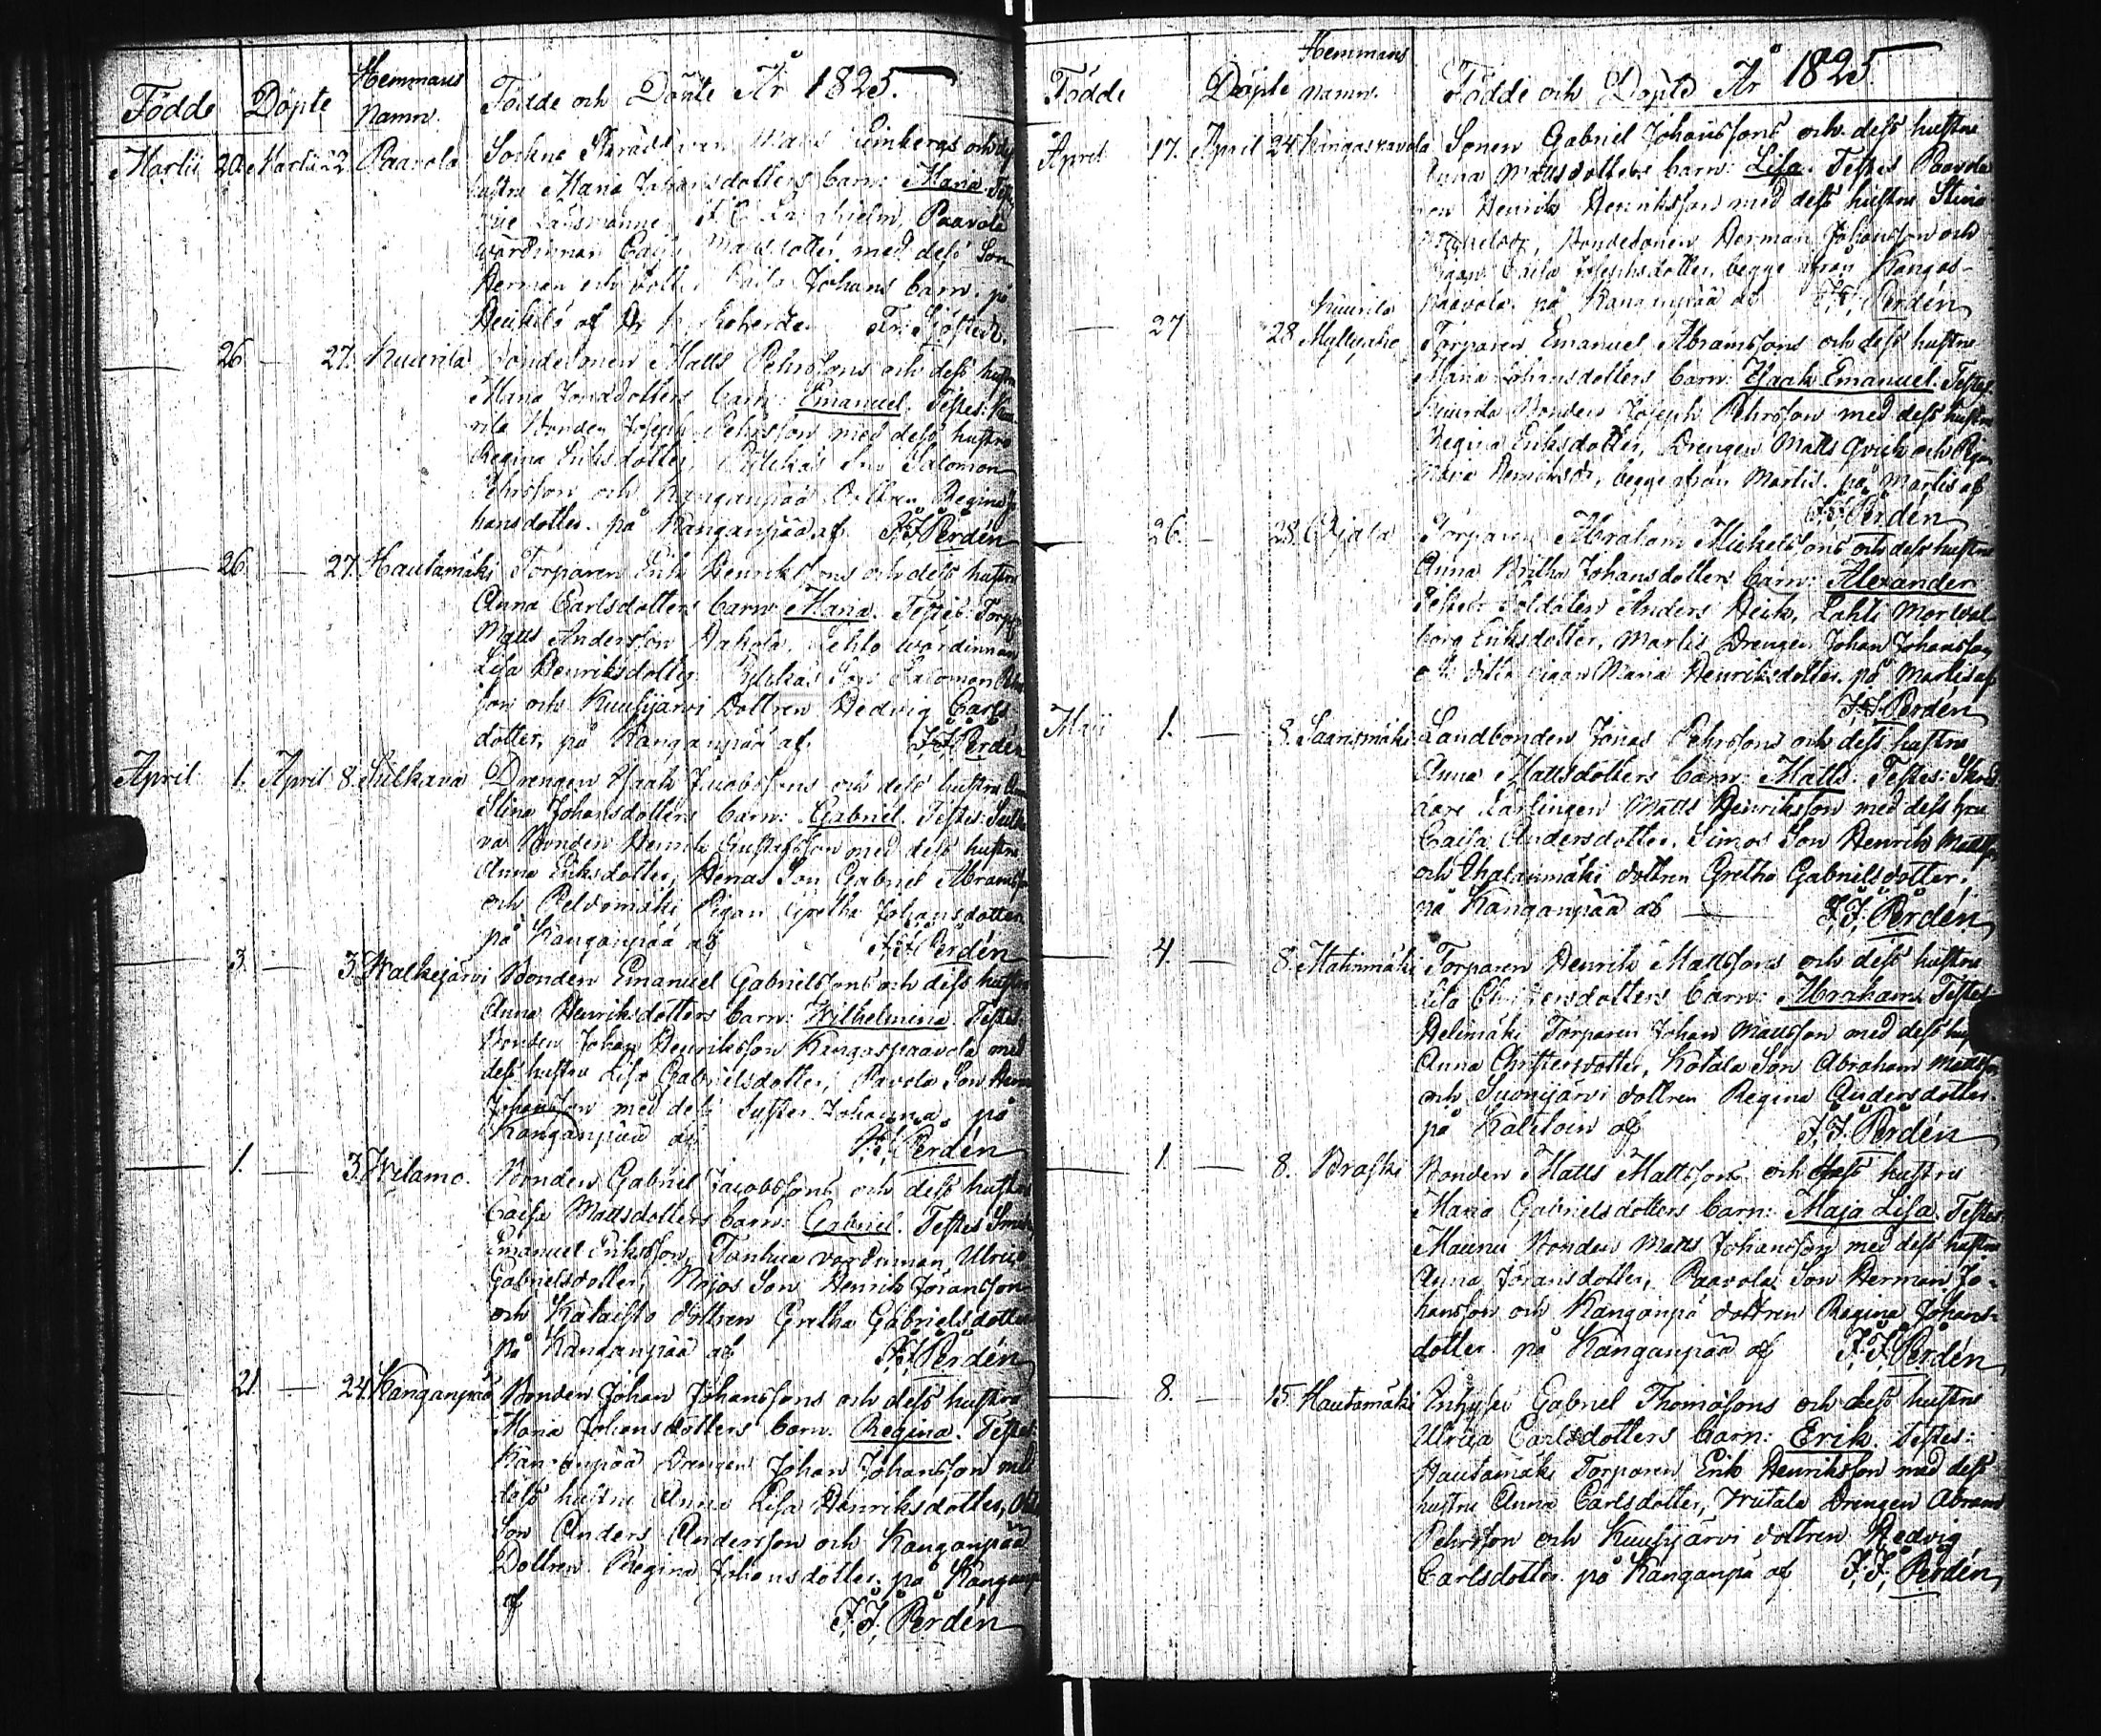 Födde
Döpte
Hemmans
Namn.
Födde och Döpte År 1825.
Martii 20 Martii 22. Paavola
Sockne Skräddaren och dess
hustru Maria Johansdotters barn: Maria. Testes
Paavola
wärdinnan Caisa Mattsdotter med dess Son
Herman och dotter Caisa Johans barn. på
af Fr: Sjöstedt.
26 — 27. Kuurila Bondesonen Matts Pehrssons och dess hustru
Maria dotters barn: Emanuel. Testes: Kuu-
rila Bonden Joseph Pehrsson med dess hustru
Regina Eriksdotter, Son Salomon
Pehrsson och Kanganpää Dottren Regina Jo-
hansdotter. på Kanganpää af F. F. Perdén
26. — 27. Hautamäki Torparen Erik Henrikssons och dess hustru
Anna Carlsdotters barn: Maria. Testes: Torp:
Matts Andersson wärdinnan
Lisa Henriksdotter. Son Salomon Pehrs-
son och Kuusijärvi Dottren Hedvig Carls
dotter, på Kanganpää af F. F. Perdén
April 1. April 8. Sulkava Drengen Isaak Jacobssons och dess hustru
Stina Johansdotters barn: Gabriel. Testes: Sulka
va Bonden Henrik Gustafsson med dess hustru
Anna Eriksdotter, Son Gabriel Abramsson
och Peldomäki Pigan Gretha Johansdotter
på Kanganpää af F. F. Perdén
3. — 3. Walkejärvi Bonden Emanuel Gabrielssons och dess hustru
Anna Henriksdotters barn: Wilhelmina. Testes:
Bonden Johan Henriksson Kangaspaavola med
dess hustru Lisa Gabrielsdotter, Pavola Son Herm:
Johansson med dess Syster Johanna, på
Kanganpää af F. F. Perdén
1. — 3. Wilamo. Bonden Gabriel Jacobssons och dess hustru
Caisa Mattsdotters barn: Gabriel. Testes
Emanuel Eriksson, Tanhua värdinnan Ulrica
Gabrielsdotter, Son Henrik Jöransson
och dottren Gretha Gabrielsdotter
på Kanganpää af F. F. Perdén
21. — 24. Kanganpää Bonden Johan Johanssons och dess hustru
Maria Johansdotters barn: Regina. Testes:
Kanganpää Drengen Johan Johansson med
dess hustru Anna Lisa Henriksdotter,
Son Anders Andersson och Kanganpää
Dottren Regina Johansdotter. på Kanganp
af F. F. Perdén
Födde
Döpte
Hemmans
namn.
Födde och Döpte År 1825
April 17. April 24 Kangaspavola Sonen Gabriel Johanssons och dess hustru
Anna Mattsdotters barn: Lisa. Testes Paavola
Henrik Henriksson med dess hustru Stina
Bondesonen Herman Johansson och
Pigan Caisa Josephsdotter, begge ifrån Kangas-
paavola. på Kanganpää af F. F. Perdén
— 27 28 Kuurila
Myllymaa Torparen Emanuel Abramssons och dess hustru
Maria Johansdotters barn: Isaak Emanuel. Testes:
Kuurila Bonden Joseph Pehrsson med dess hustru
Regina Eriksdotter, Drengen Matts och Pigan
Henriksdr, begge ifrån Martis. på Martis af
F. F. Perdén
26. — 28. Ojala Torparen Abraham Mickelssons och dess hustru
Anna Britha Johansdotters barn: Alexander
Testes Soldaten Anders Lahti Mor Wal-
borg Eriksdotter, Martis Drengen Johan Johansson
och pigan Maria Henriksdotter. på Martis af
F. F. Perdén
Maij 1. — 8. Saarismäki Landbonden Jonas Pehrssons och dess hustru
Anna Mattsdotters barn: Matts. Testes: Skräd-
dare Lärlingen Matts Henriksson med dess hru
Caisa Andersdotter. Simos Son Henrik Mattss:
och dottren Gretha Gabrielsdotter.
på Kanganpää af — F. F. Perdén
— 4. — 8. Matinmäki Torparen Henrik Mattssons och dess hustru
Lisa Christersdotters barn: Abraham. Testes
Helimäki Torparen Johan Mattsson med dess hustru
Anna Christersdotter, Kotala Son Abraham Mattsson
och Suomijärvi dottren Regina Andersdotter.
på af F. F. Perdén
— 1. — 8. Braski Bonden Matts Mattssons och dess hustru
Maria Gabrielsdotters barn: Maja Lisa. Testes:
Maunu Bonden Matts Johansson med dess hustru
Anna Jöransdotter, Paavola Son Herman Jo-
hansson och Kanganpä dottren Regina Johans-
dotter. på Kanganpää af F. F. Perdén
— 8. — 15. Hautamäki Gabriel Thomassons och dess hustru
Ulrica Carlsdotters barn: Erik. Testes:
Hautamäki Torparen Erik Henriksson med dess
hustru Anna Carlsdotter, Drengen Abram
Pehrsson och Kuusijärvi dottren Hedvig
Carlsdotter. på Kanganpä af F. F. Perdén